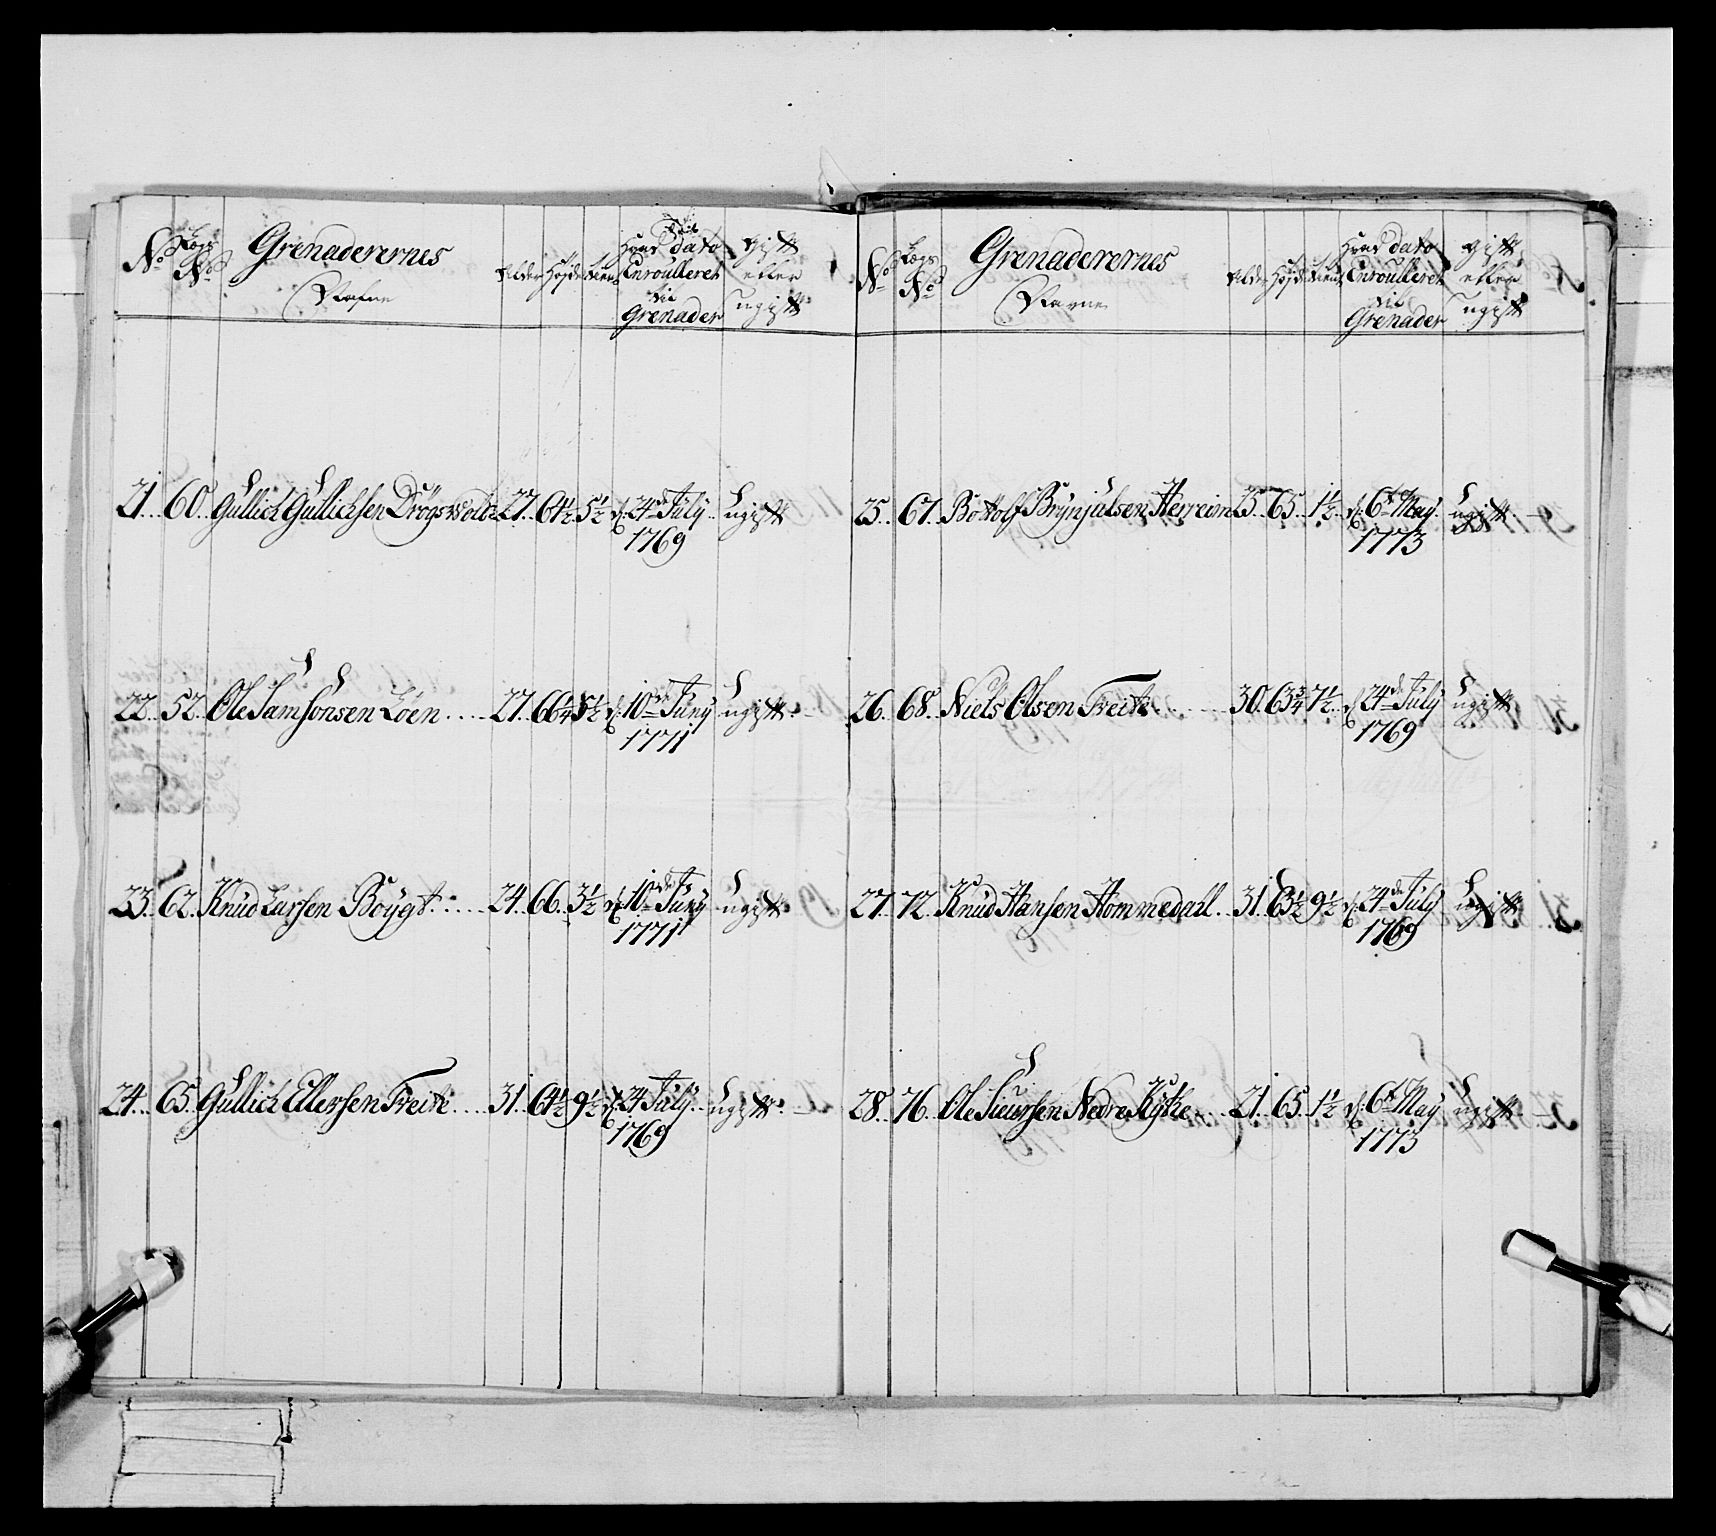 No Lægs No Grenaderernes Nafne Alder Høyde Tient Hvad dato Enroulleret til Grenader gift eller ugift
21. 60. Gullich Gullichsen Drögsvold 27. 64½ 5½ d: 24de July 1769 ugift
22. 52. Ole Samsonsen Löen 27. 66¼ 5½ d: 10de Juny 1771 ugift
23. 62. Knud Larsen Böygt 24. 66. 3½ d: 10de Juny 1771 ugift
24. 65. Gullich Ellersen Treite 31. 64½ 9½ d: 24 July 1769 ugift
No Lægs No Grenaderernes Navne Alder Høyde Tient Hvad dato Enroulleret til Grenader gift eller ugift
25. 67. Bottolf Brynjulsen Herreim 25. 65. 1½ d: 6t May 1773 ugift
26. 68. Niels Olsen Treite 30. 63¾ 7½ d: 24de July 1769 ugift
27. 72. Knud Hansen Hommedall 31. 63½ 9½ d: 24de July 1769 ugift
28. 76. Ole Siursen Nedre Kÿtke 21. 65. 1½ d: 6t May 1773 ugift